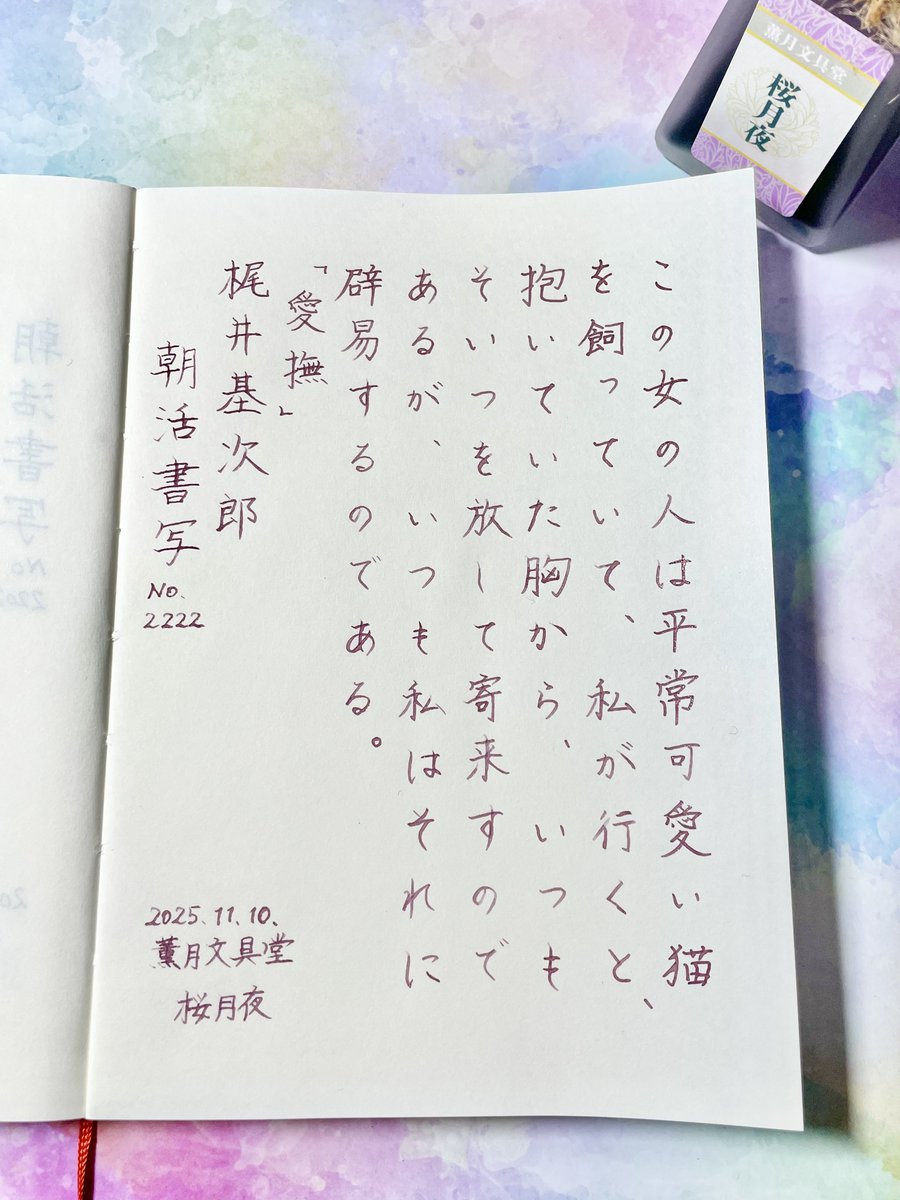 この女の人は平常可愛い猫
を飼っていて、私が行くと、
抱いていた胸から、いつも
そいつを放して寄来すので
あるが、いつも私はそれに
辟易するのである。
「愛撫」
梶井基次郎
朝活書写
No.
2222
2025.11.10.
薫月文具堂
桜月夜
薫月文具堂
桜月夜
朝活書写
No.